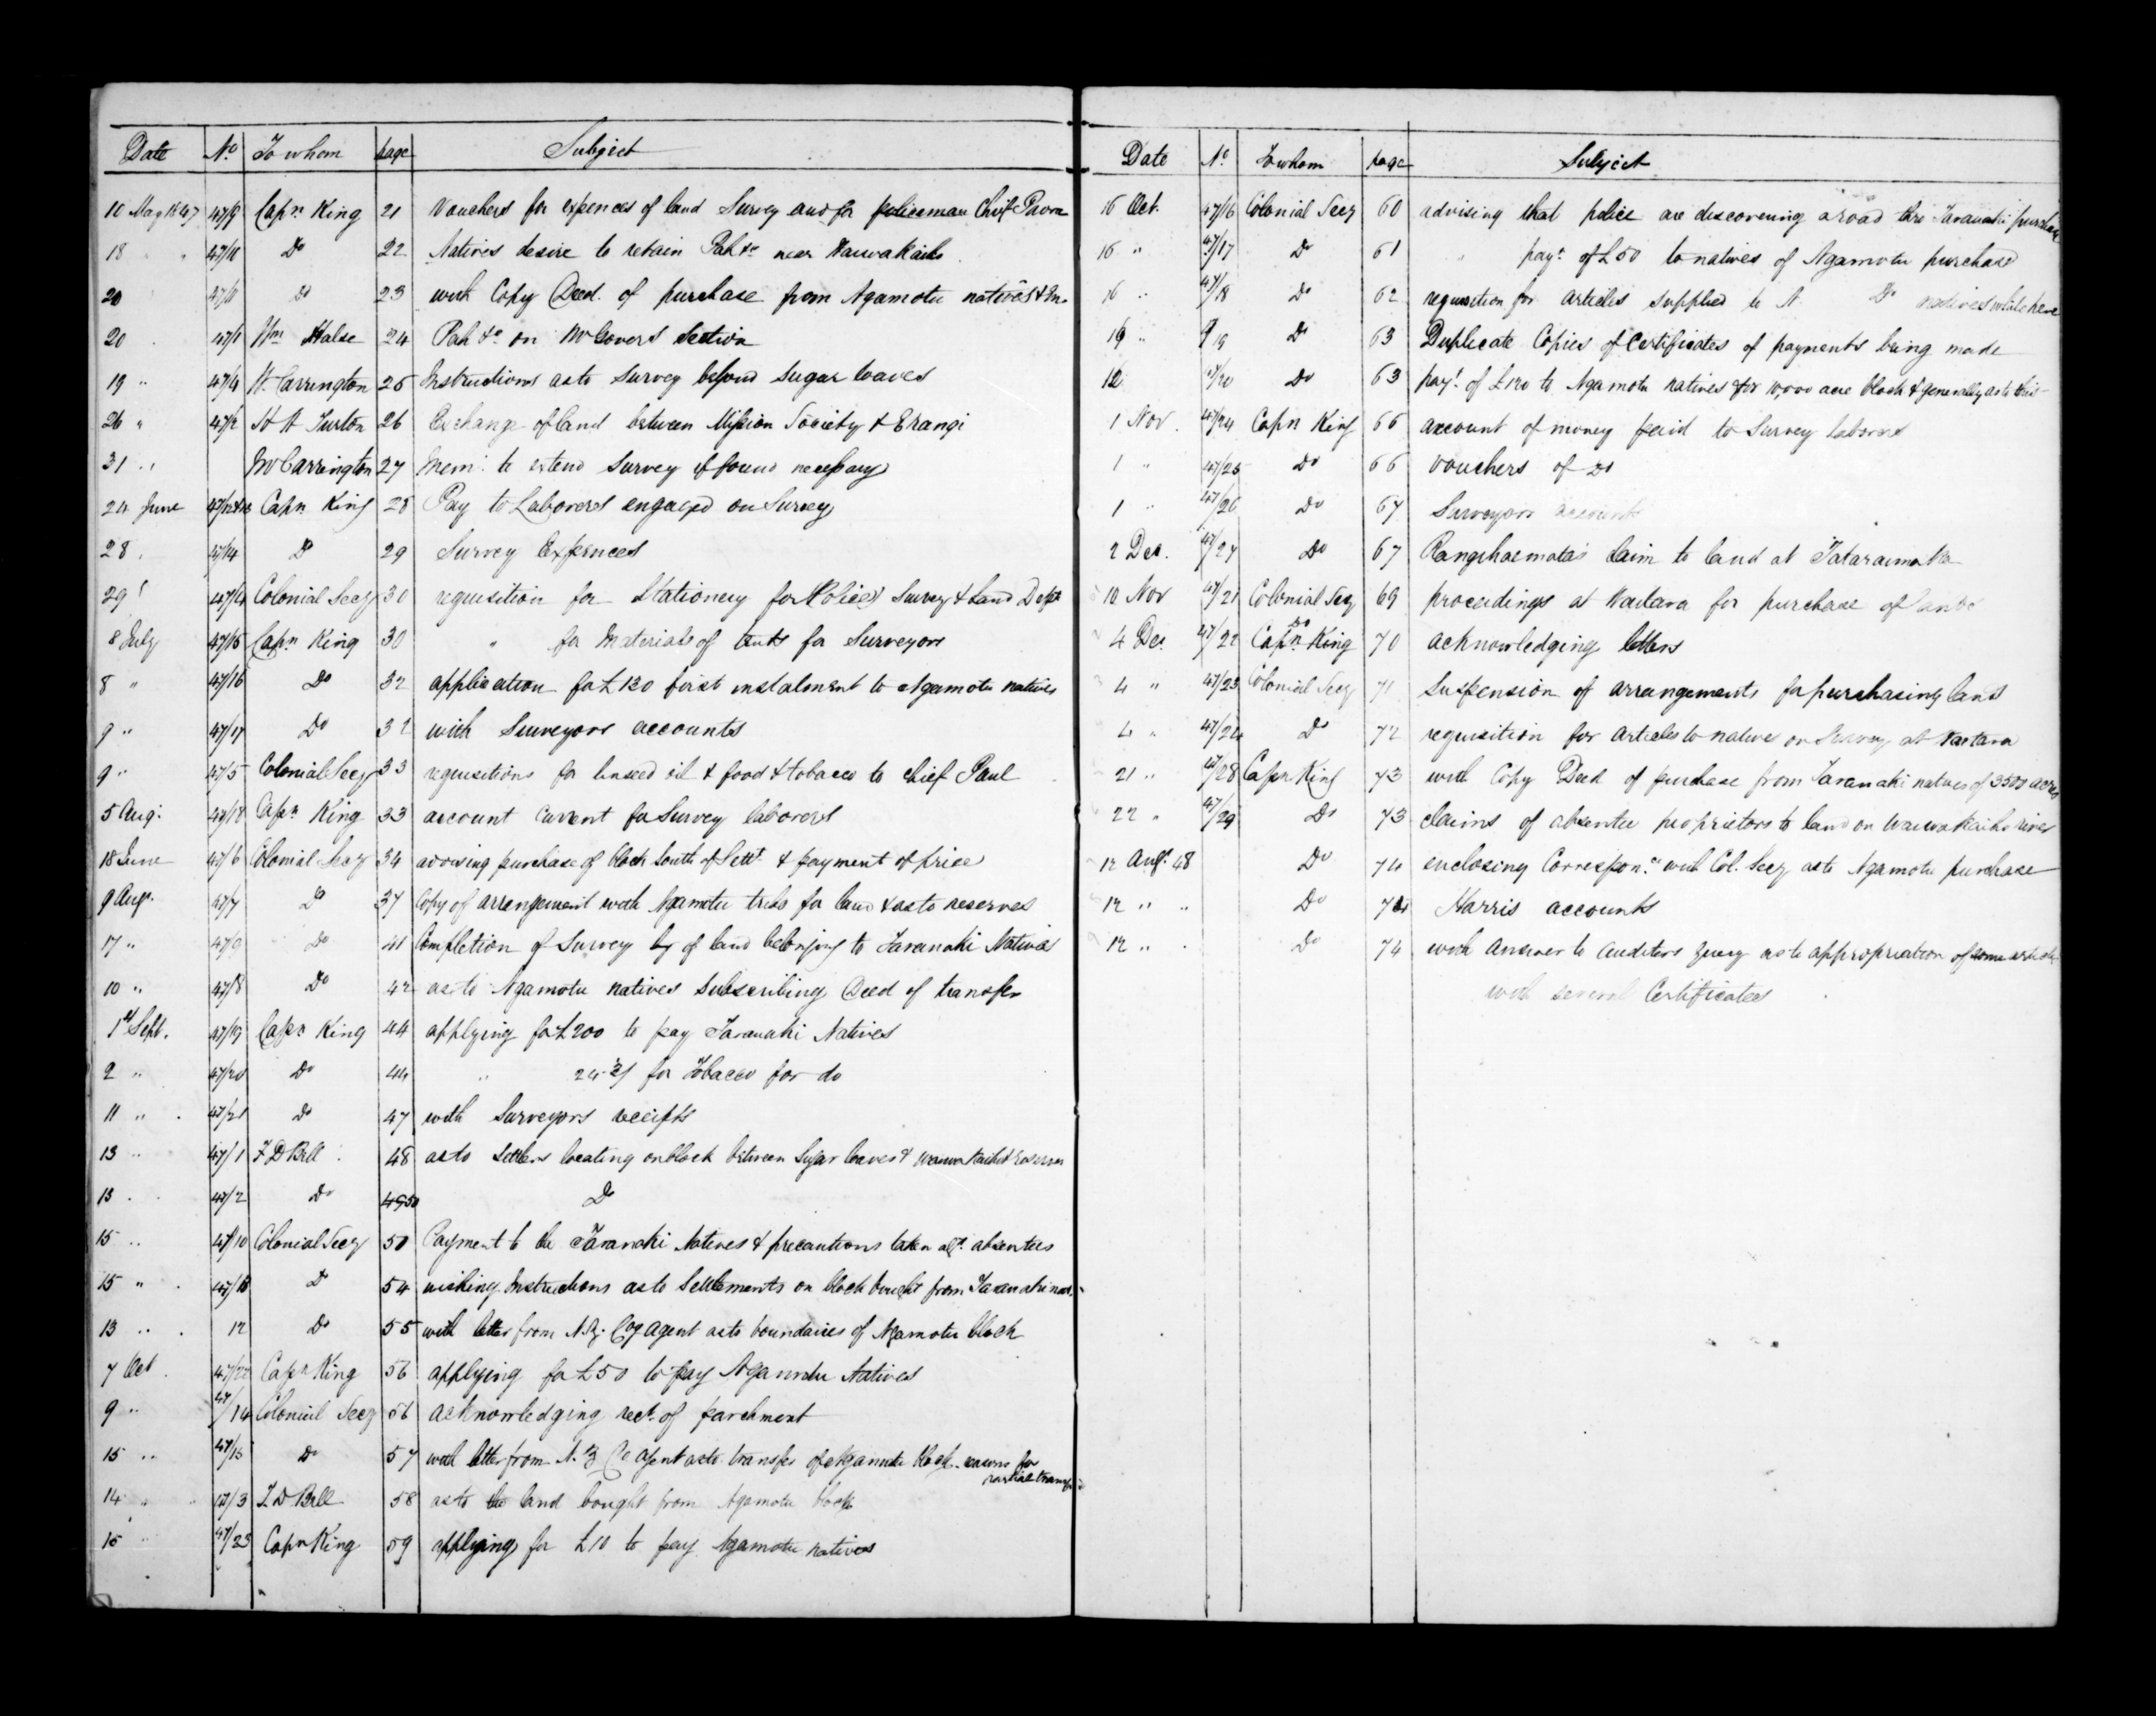 Date No To whom page Subject
10 May 1847 47/9 Capn King 21 Vouchers for expences of land Survey and for policeman Chief Paora
18 " 47/10 Do 22 Natives desire to retain Pah &c near Waiwakaiho
20 47/11 Do 23 with Copy Deed of purchase from Ngamotu natives &
20 47/1 Wm Halse 24 Pah &c on McGovers Section
19 " 47/4 W. Carrington 25 Instructions as to Survey beyond Sugar loaves
26 " 47/2 H H Turton 26 Exchange of land between Mission Society & Erangi
31 " Mr Carrington 27 Mem: to extend Survey if found necessary
24 June 47/12&13 Capn King 28 Pay to Laborers engaged on Survey
28 . 47/14 Do 29 Survey Expences
29 47/4 Colonial Secy 30 requisition for Stationery for Police Survey & Land Dept
8 July 47/15 Capn King 30 " for Materials of tents for Surveyors
8 " 47/16 Do 32 application for £130 first instalment to Ngamotu natives
9 " 47/17 Do 32 with Surveyors accounts
9 " 47/5 Colonial Secy 33 requisitions for linseed oil & food & tobacco to chief Paul
5 Aug: 47/18 Capn King 33 account current for Survey laborers
18 June 47/6 Colonial Secy 34 advising purchase of block South of Settt & payment of price
9 Augt. 47/7 Do 37 Copy of arrangement with Ngamotu tribes for land & as to reserves
17 " 47/9 Do 41 Completion of Survey by of land belonging to Taranaki Natives
10 " 47/8 Do 42 as to Ngamotu natives Subscribing Deed of transfer
1st Sept. 47/19 Capn King 44 applying for £200 to pay Taranaki Natives
2 " 47/20 Do 44 " 24 for Tobacco for do
11 " 47/21 Do 47 with Surveyors receipts
13 " 47/1 F D Bell 48 as to Settlers locating on block between Sugar loaves & Waiwakaiho & reserves
13 . 47/2 Do 49 50 Do
15 " 47/10 Colonial Secy 50 Payment to the Taranaki Natives & precautions taken agt. absentees
15 " 47/ Do 54 wishing Instructions as to Settlements on block bought from Taranaki nat.
13 " 12 Do 55 with letter from N.Z. Coy Agent as to boundaries of Ngamotu block
7 Oct 47/22 Capn King 56 applying for £50 to pay Ngamotu Natives
9 " 47/14 Colonial Secy 56 acknowledging rect. of parchment
15 " 47/15 Do 57 with letter from N.Z Co Agent as to transfer of Ngamotu block reasons for
partial transfr
14 " 47/3 F D Bell 58 as to the land bought from Ngamotu block
15 " 47/23 Capn King 59 applying for £10 to pay Ngamotu natives
Date No. To whom page Subject
16 Oct. 47/16 Colonial Secy 60 advising that police are discovering a road thro Taranaki purchase
16 " 47/17 Do 61 " payt. of £50 to natives of Ngamotu purchase
16 " 47/18 Do 62 requisition for articles supplied to N. Do natives while here
19 " 19 Do 63 Duplicate Copies of Certificates of payments being made
12 47/20 Do 63 payt. of £120 to Ngamotu natives for 10,000 acre block & generally as to this
1 Nov. 47/24 Capn King 66 account of money paid to Survey laborers
1 " 47/25 Do 66 vouchers of Do
1 " 47/26 Do 67 Surveyors accounts
2 Dec. 47/27 Do 67 Rangihaeata's claim to land at Tataraimaka
10 Nov 47/21 Colonial Secy 69 proceedings at Waitara for purchase of land
4 Dec. 47/22 Capn King Do 70 acknowledging letters
4 " 47/23 Colonial Secy 71 Suspension of arrangements for purchasing land
4 " 47/24 Do 72 requisition for articles to natives on Survey at Waitara
21 " 47/28 Capn King 73 with Copy Deed of purchase from Taranaki natives of 3500 acres
22 " 47/29 Do 73 claims of absentee proprietors to land on Waiwakaiho river
12 Augt. 48 Do 74 enclosing Correspon.ce with Col. Secy as to Ngamotu purchase
12 " " Do 74 Harris accounts
12 " . Do 74 with Answer to Auditors query as to appropriation of some articles
with several Certificates